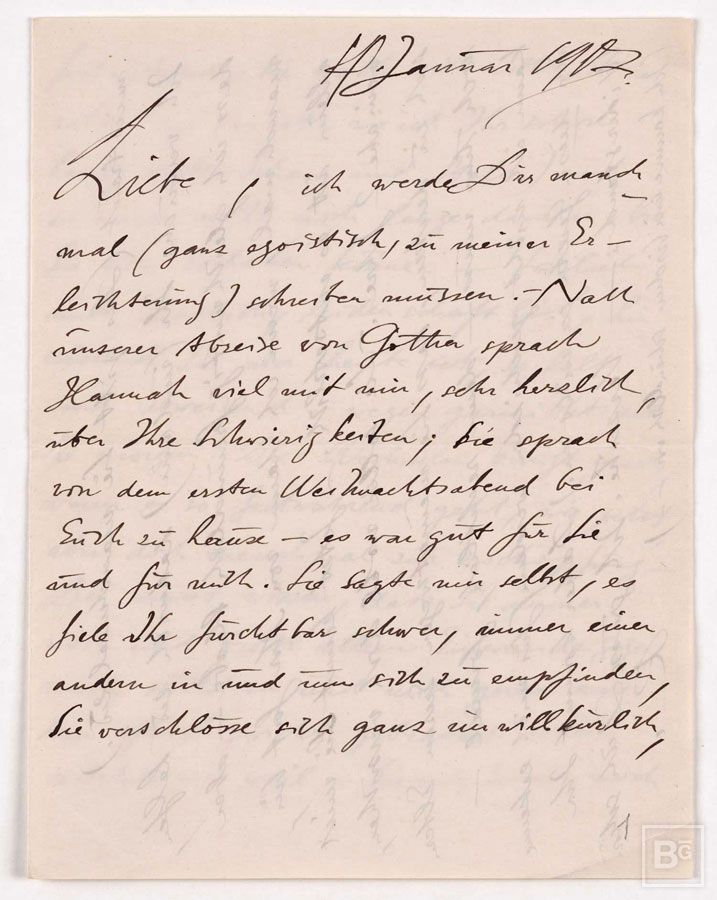 Januar
Liebe, ich werde Dir manch-
mal (ganz egoistisch, zu meiner Er-
leichterung) schreiben müssen. – Nach
unserer Abreise von Gotha sprach
Hannah viel mit mir, sehr herzlich,
über Ihre Schwierigkeiten; Sie sprach
von dem ersten Weihnachtsabend bei
Euch zu hause – es war gut für Sie
und für mich. Sie sagte mir selbst, es
fiele Ihr furchtbar schwer, immer einen
andern in und um sich zu empfinden,
Sie verschlösse sich ganz unwillkürlich,
1
BG